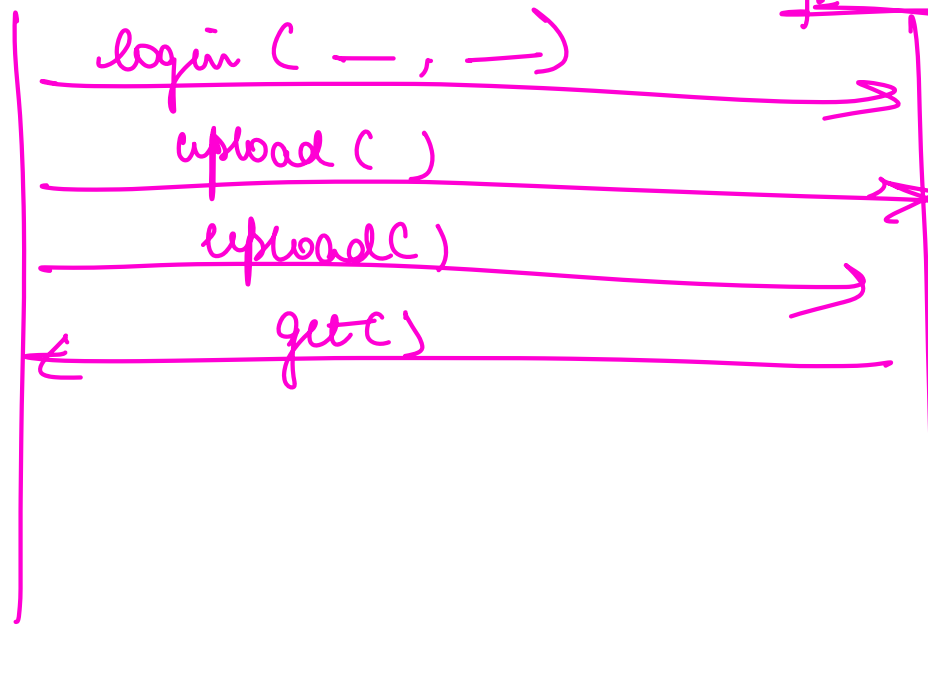 login ( — , — )
upload ( )
upload ( )
get ( )